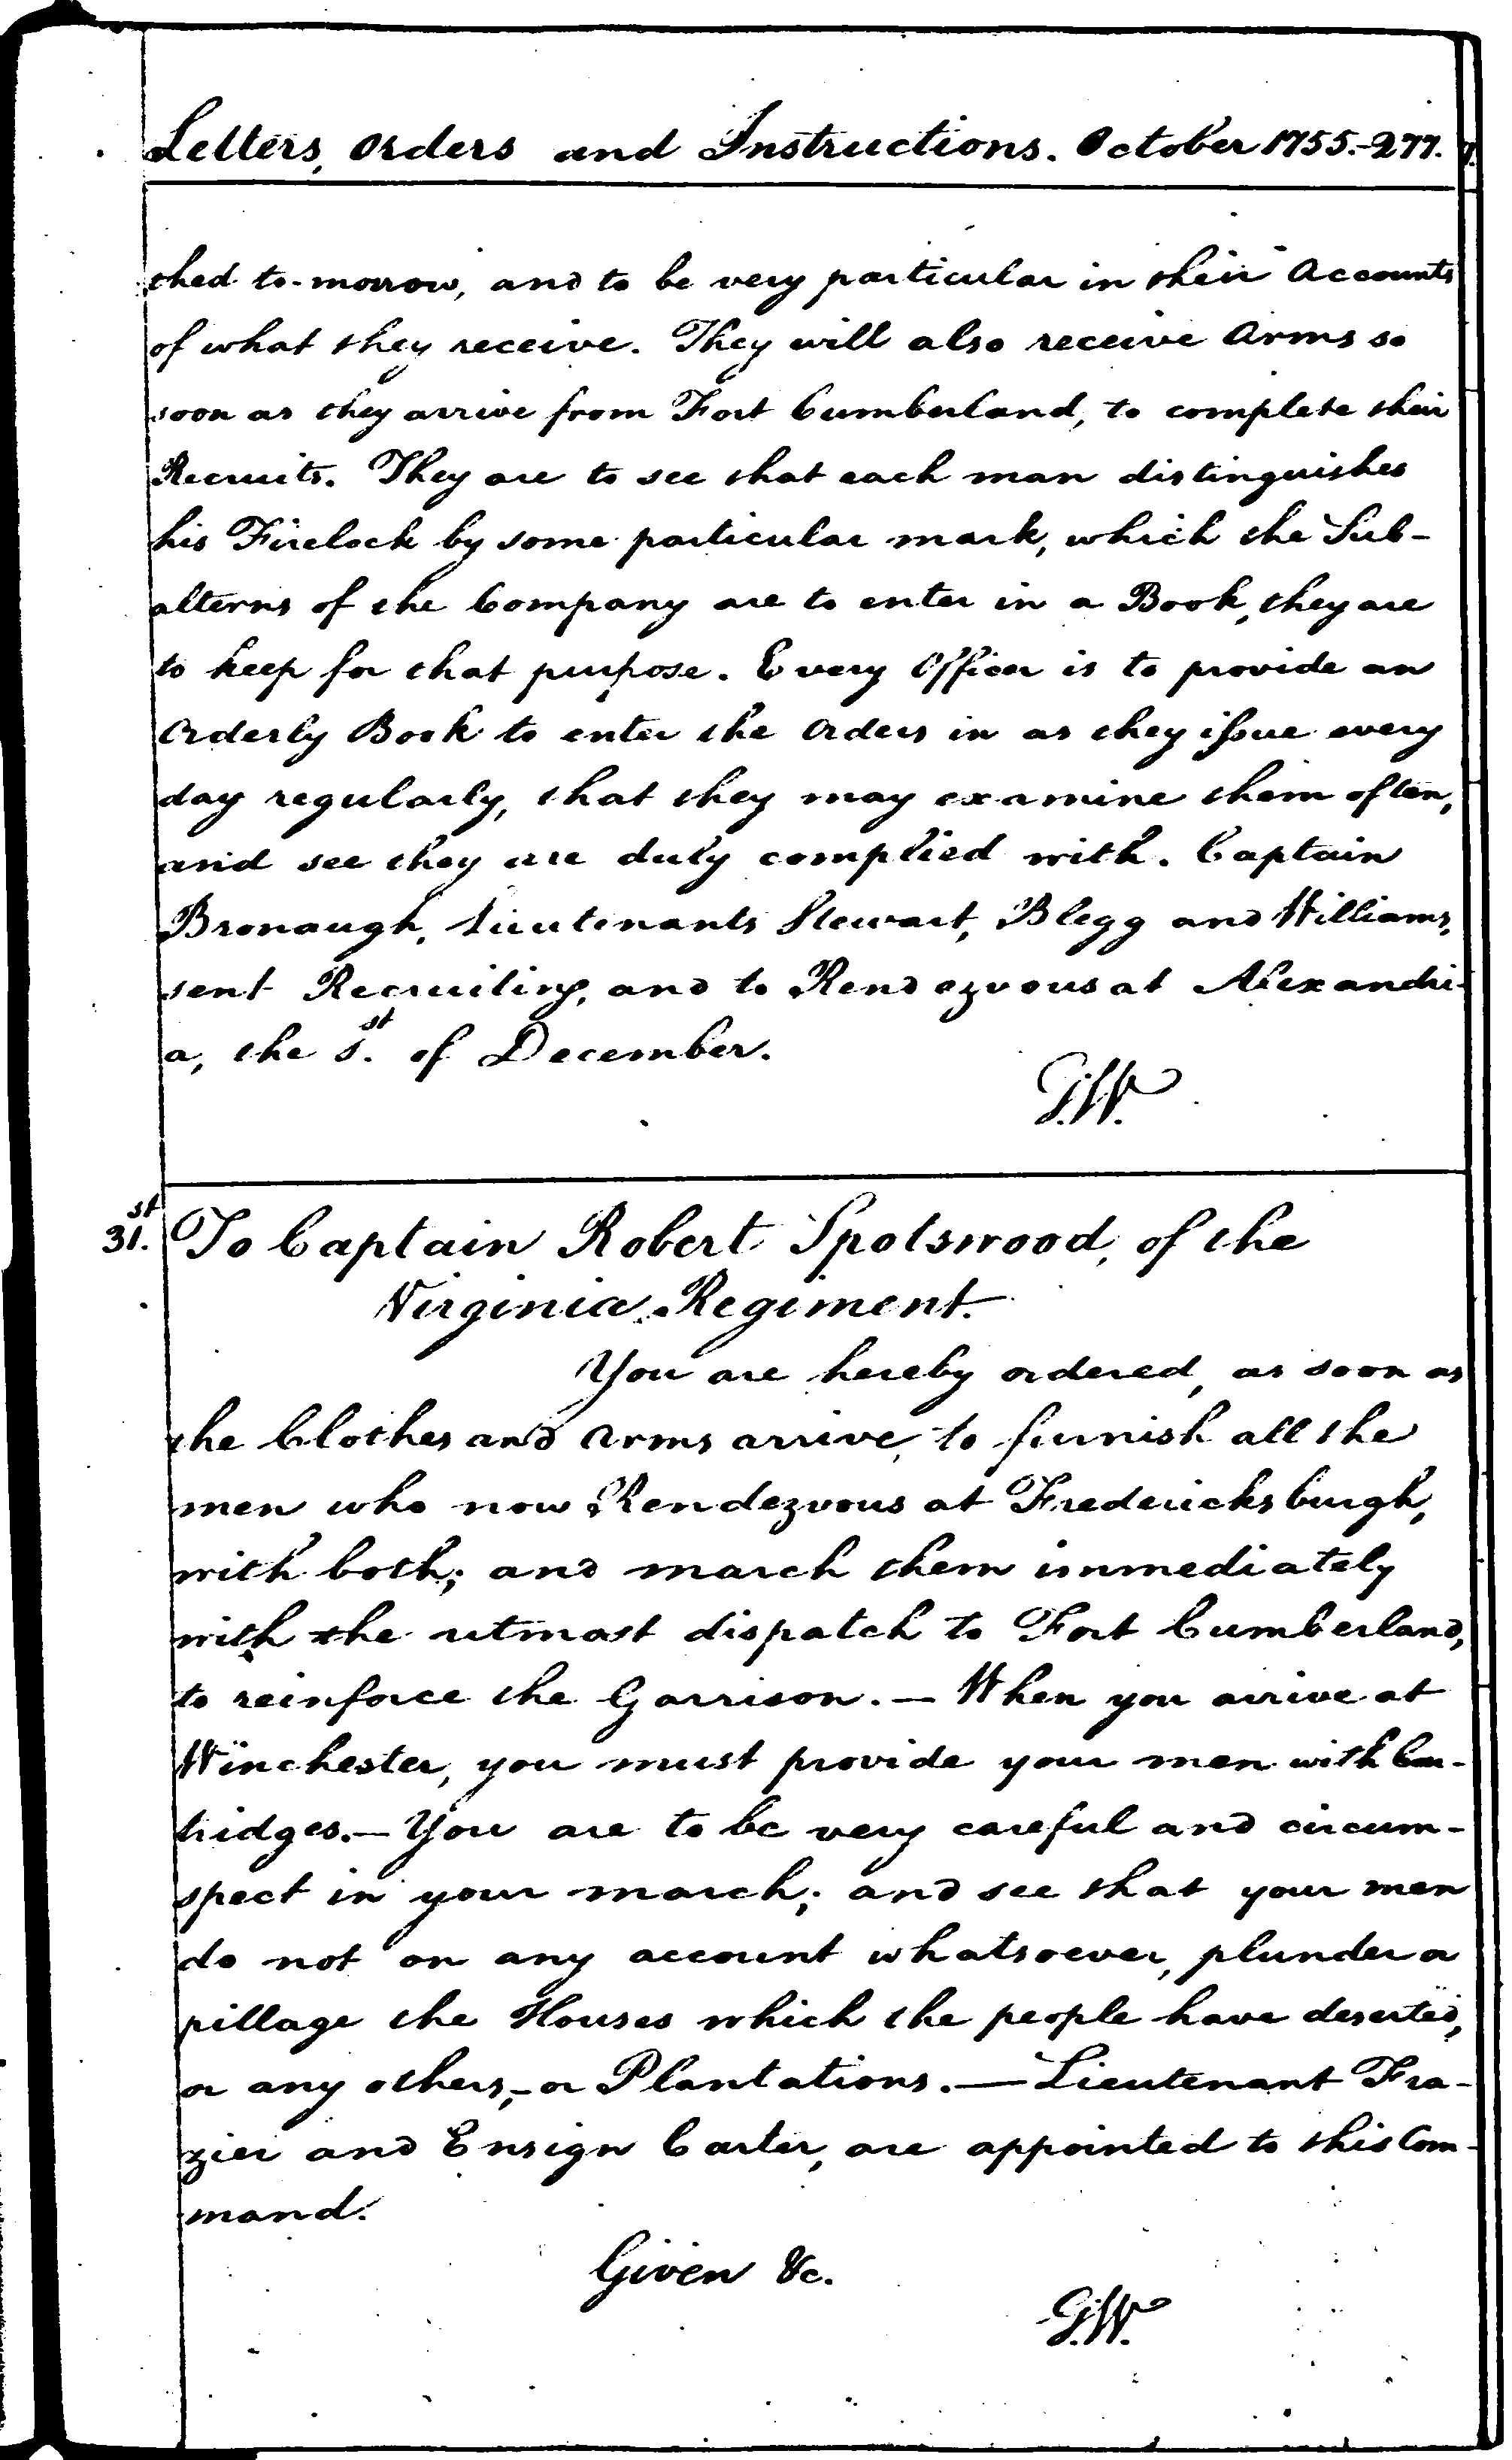 Letters, Orders and Instructions. October 1755.-277.
ched to-morrow, and to be very particular in their Accounts
of what they receive. They will also receive Arms so
soon as they arrive from Fort Cumberland, to complete their
Recruits. They are to see that each man distinguishes
his Firelock by some particular mark, which the Sub-
alterns of the Company are to enter in a Book, they are
to keep for that purpose. Every Officer is to provide an
Orderly Book to enter the Orders in as they issue every
day regularly, that they may examine them often,
and see they are duly complied with. Captain
Bronaugh, Lieutenants Stewart, Blegg and Williams,
sent Recruiting, and to Rendezvous at Alexandri-
a, the 1.st of December.
G.W.
31.st To Captain Robert Spotswood, of the
Virginia Regiment.
You are hereby ordered, as soon as
the Clothes and Arms arrive, to furnish all the
men who now Rendezvous at Fredericksburgh,
with both; and march them immediately
with the utmost dispatch to Fort Cumberland,
to reinforce the Garrison.— When you arrive at
Winchester, you must provide your men with Car-
tridges.— You are to be very careful and circum-
spect in your march; and see that your men
do not on any account whatsoever, plunder or
pillage the Houses which the people have deserted,
or any others,- or Plantations.— Lieutenant Fra-
zier and Ensign Carter, are appointed to this Com-
mand.
Given &c.
G.W.